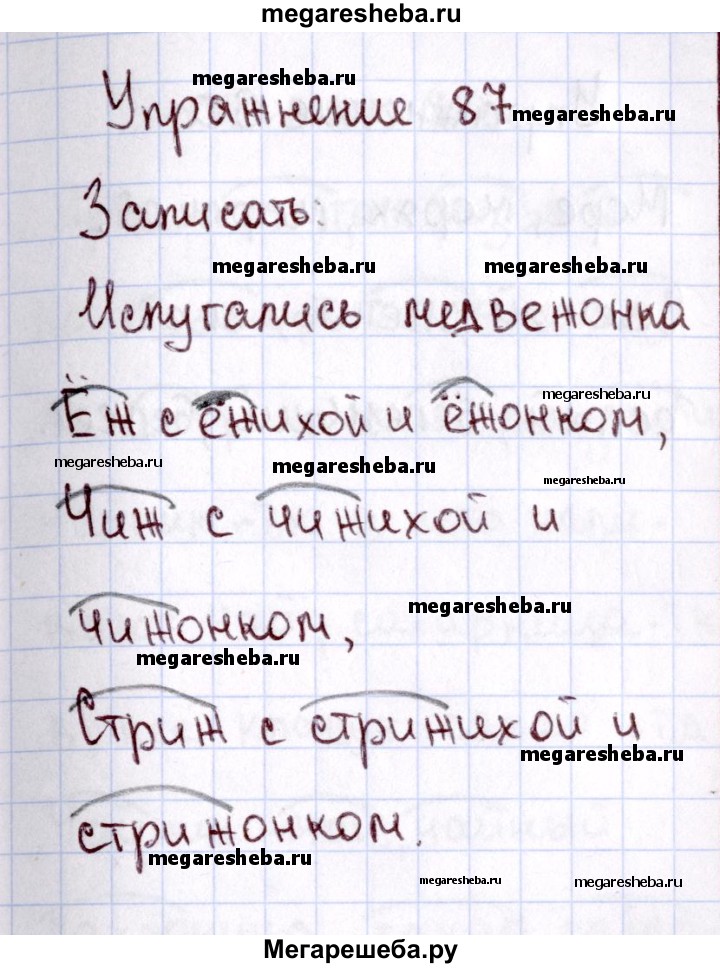 megaresheba.ru
megaresheba.ru
Упражнение 87
megaresheba.ru
Записать:
megaresheba.ru megaresheba.ru
Испугались медвежонка
megaresheba.ru
Ёж с ёжихой и ёжонком,
megaresheba.ru megaresheba.ru
megaresheba.ru
Чиж с чижихой и
megaresheba.ru
чижонком,
megaresheba.ru
Стриж с стрижихой и
megaresheba.ru
стрижонком.
megaresheba.ru
megaresheba.ru megaresheba.ru
Мегарешеба.ру